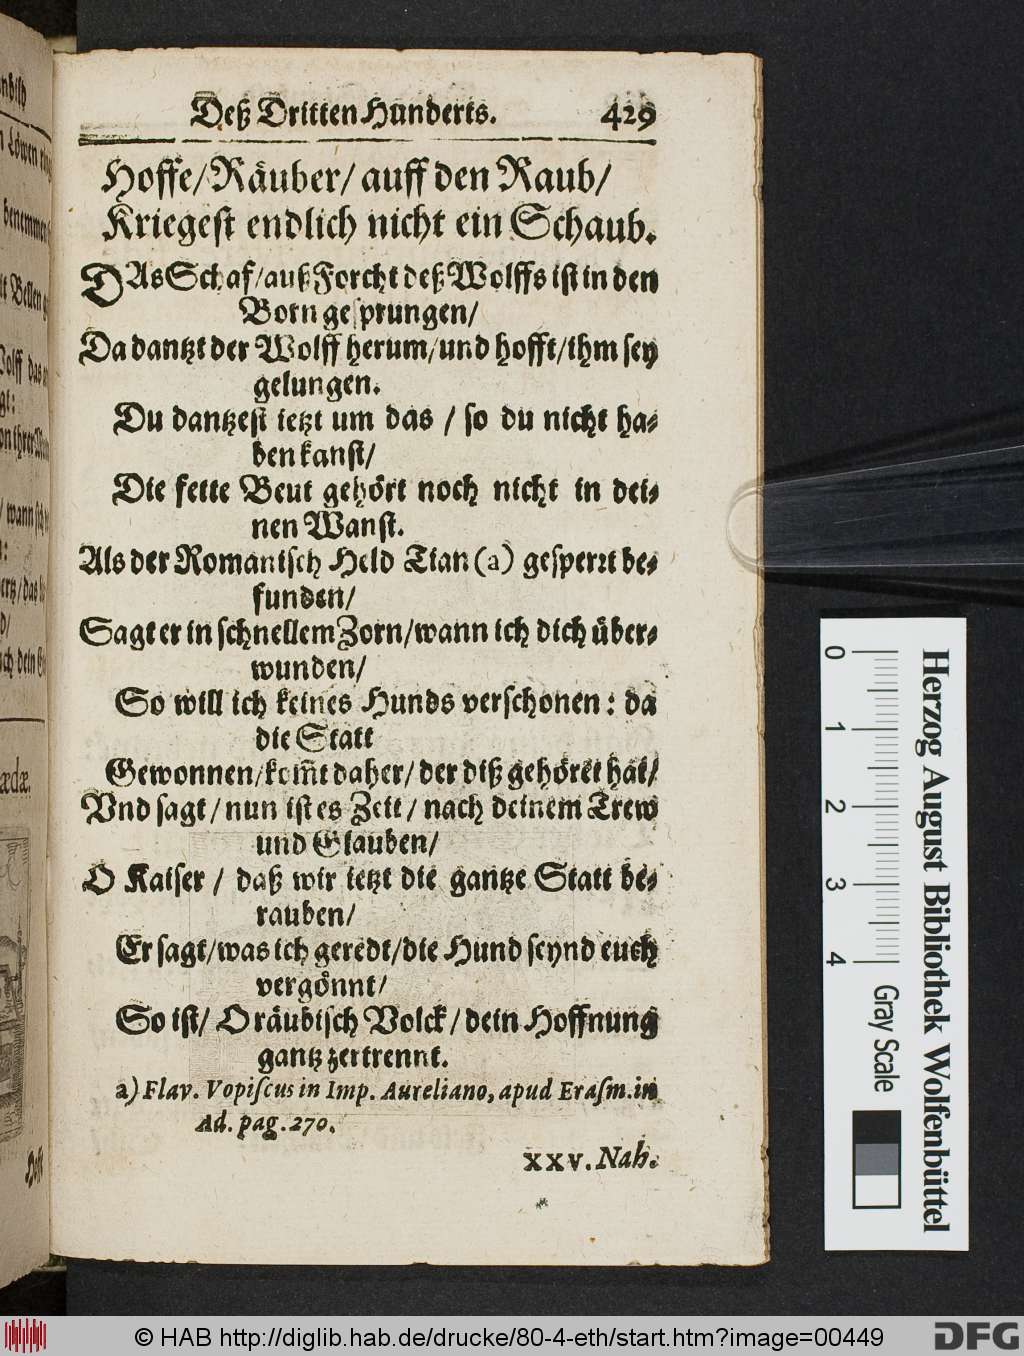 Deß Dritten Hunderts. 429
Hoffe/ Räuber/ auff den Raub/
Kriegest endlich nicht ein Schaub.
DAs Schaf/ auß Forcht deß Wolffs ist in den
Born gesprungen/
Da dantzt der Wolff herum/ und hofft/ ihm sey
gelungen.
Du dantzest ietzt um das / so du nicht ha-
ben kanst/
Die fette Beut gehört noch nicht in dei-
nen Wanst.
Als der Romanisch Held Tian (a) gesperrt be-
funden/
Sagt er in schnellem Zorn/ wann ich dich über-
wunden/
So will ich keines Hunds verschonen: da
die Statt
Gewonnen/ kom̅t daher/ der diß gehöret hat/
Vnd sagt / nun ist es Zeit / nach deinem Trew
und Glauben/
O Kaiser / daß wir ietzt die gantze Statt be-
rauben/
Er sagt/ was ich geredt/ die Hund seynd euch
vergönnt/
So ist/ O räubisch Volck / dein Hoffnung
gantz zertrennt.
a) Flav. Vopiscus in Imp. Aureliano, apud Erasm. in
Ad. pag. 270.
XXV. Nah.
0 1 2 3 4
Herzog August Bibliothek Wolfenbüttel
Gray Scale
© HAB http://diglib.hab.de/drucke/80-4-eth/start.htm?image=00449
DFG